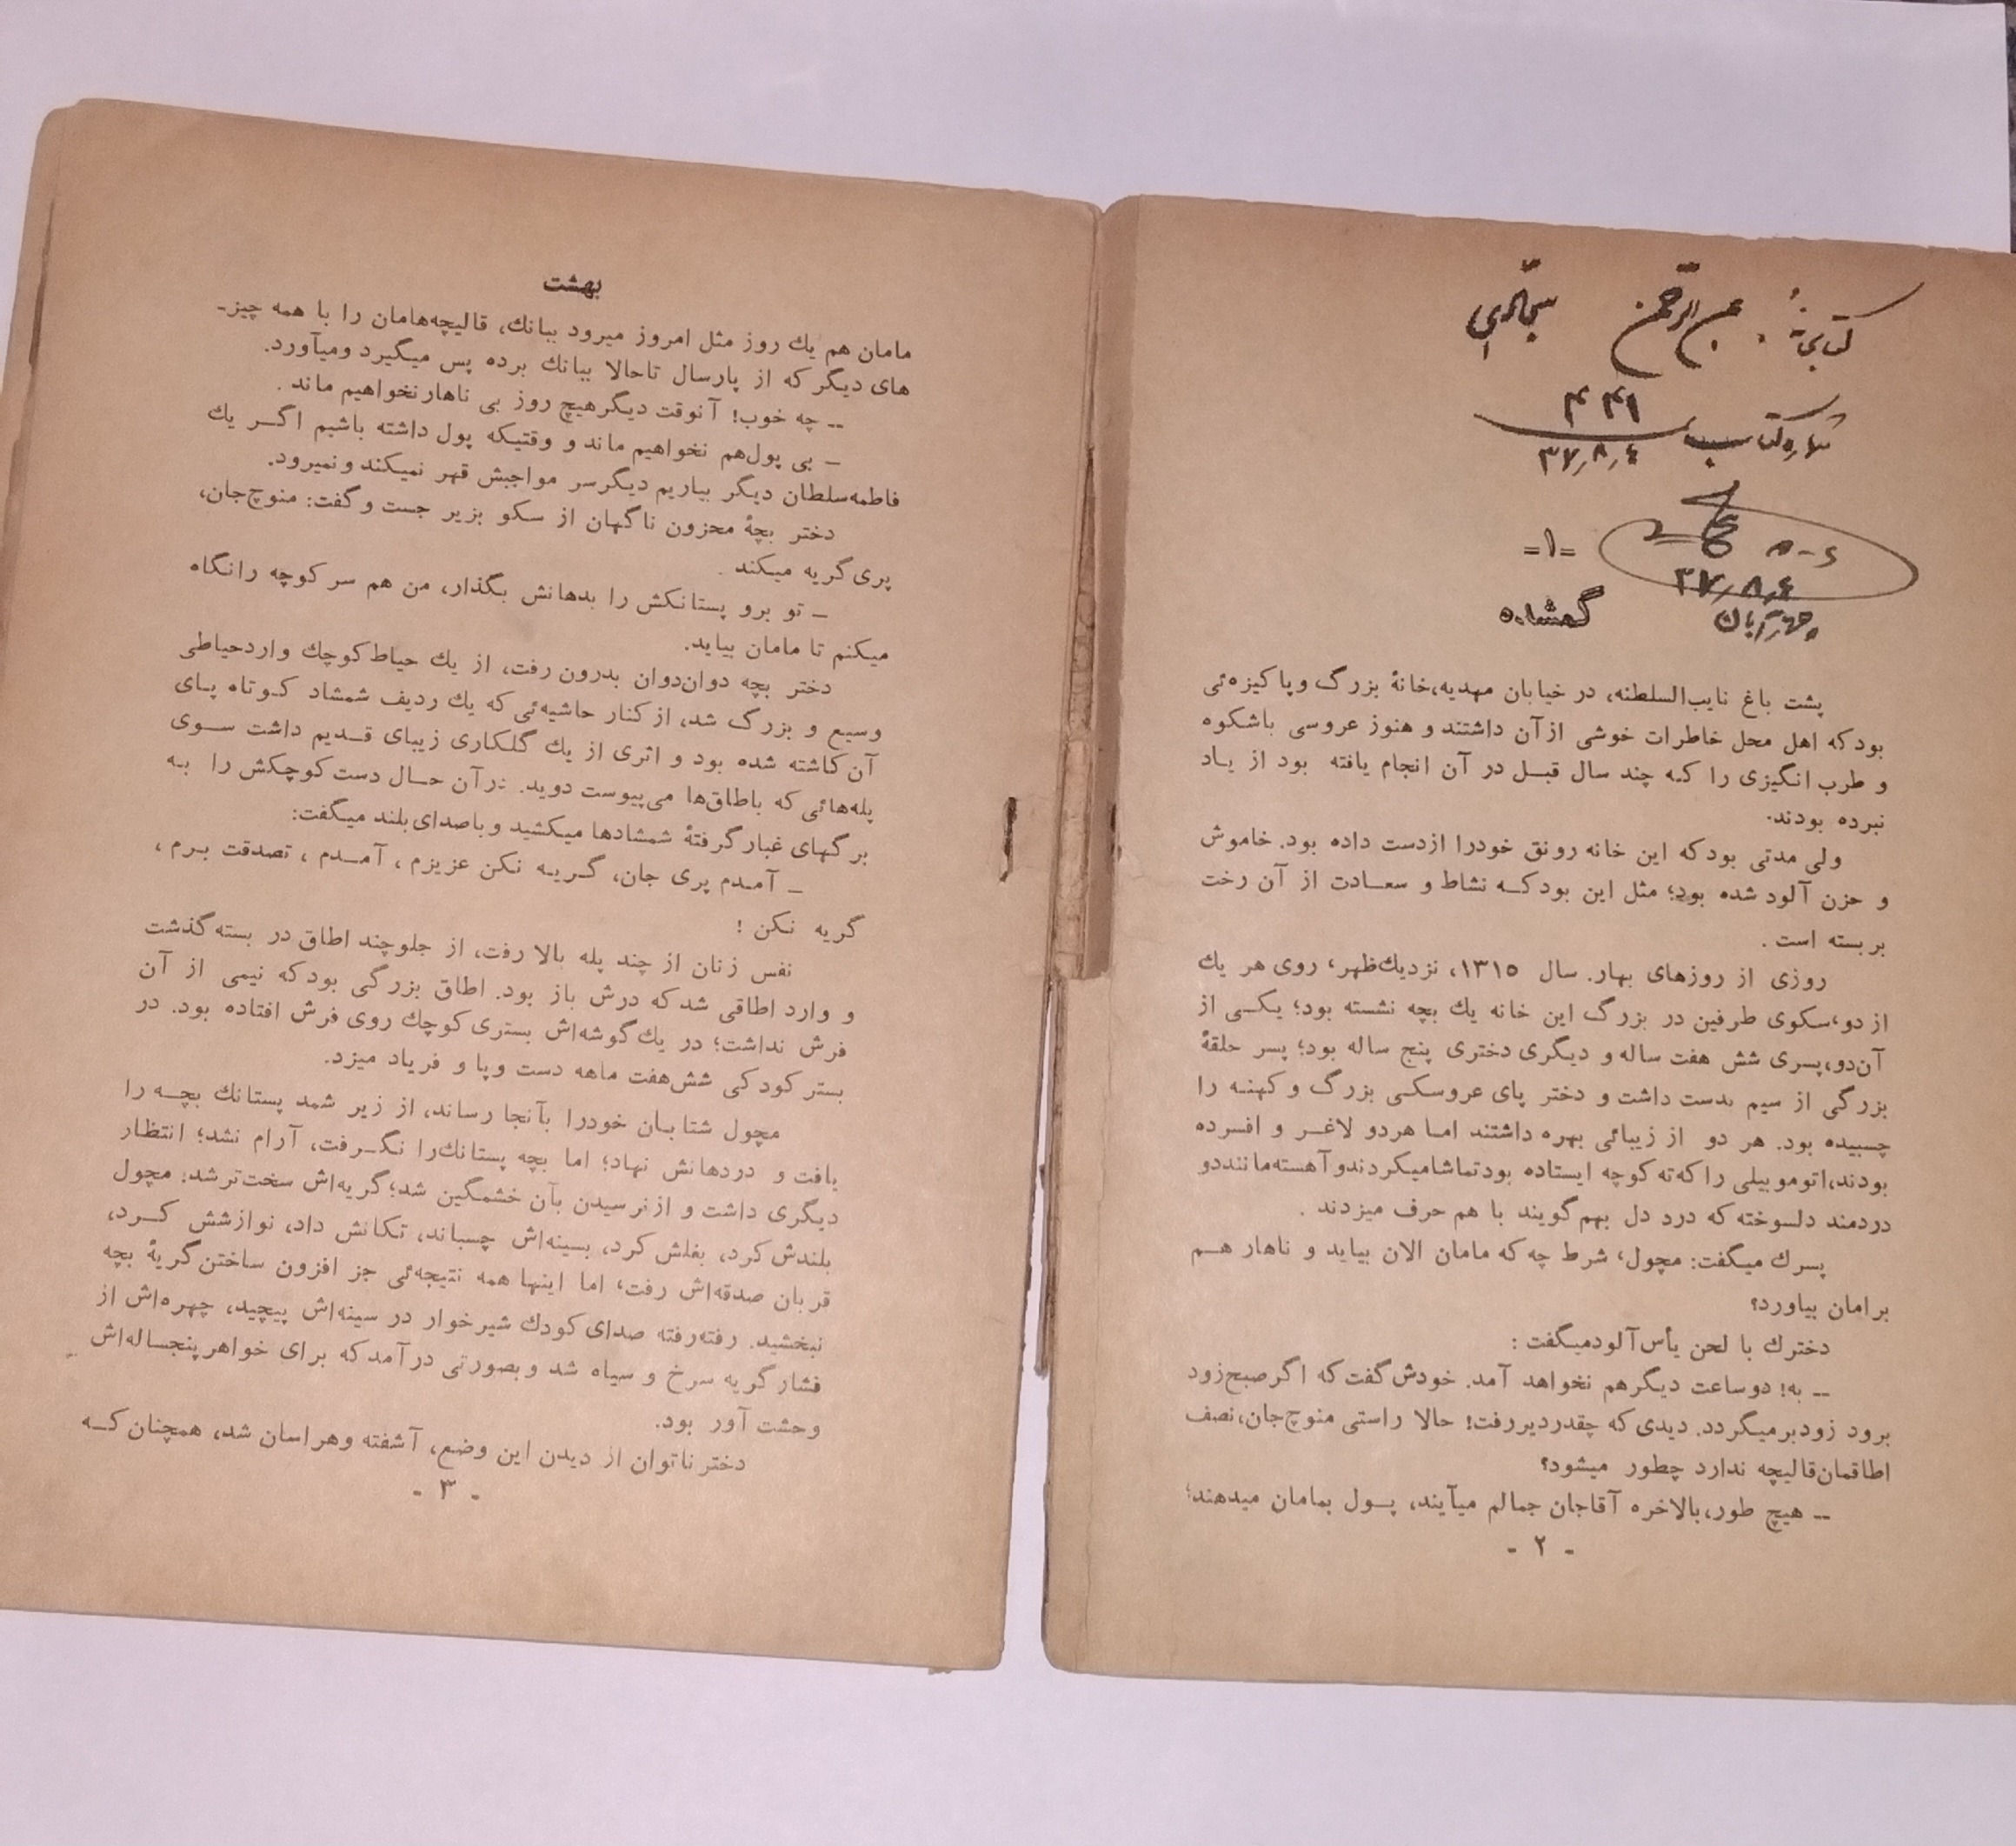 کتابخانهٔ
شماره کتاب ۴۴۱
۳۷٫۸٫٤
۳۷٫۸٫٤
=۱=
گمشده
پشت باغ نایب‌السلطنه، در خیابان مهدیه،خانهٔ بزرگ وپاکیزه‌ئی
بود که اهل محل خاطرات خوشی از آن داشتند و هنوز عروسی باشکوه
و طرب انگیزی را کـه چند سال قبـل در آن انجام یافته بود از یـاد
نبرده بودند.
ولی مدتی بود که این خانه رونق خودرا ازدست داده بود. خاموش
و حزن آلود شده بود؛ مثل این بود کـه نشاط و سعـادت از آن رخت
بر بسته است .
روزی از روزهای بهار. سال ۱۳۱۵، نزدیك‌ظهر، روی هر یك
از دو،سکوی طرفین در بزرگ این خانه یك بچه نشسته بود؛ یکـی از
آن‌دو،پسری شش هفت ساله و دیگری دختری پنج ساله بود؛ پسر حلقهٔ
بزرگی از سیم بدست داشت و دختر پای عروسکـی بزرگ و کهنـه را
چسبیده بود. هر دو از زیبائی بهره داشتند امـا هردو لاغـر و افسرده
بودند،اتوموبیلی را که‌ته کوچه ایستاده بودتماشامیکردندوآهسته‌ماننددو
دردمند دلسوخته که درد دل بهم گویند با هم حرف میزدند .
پسرك میگفت: مچول، شرط چه که مامان الان بیاید و ناهار هـم
برامان بیاورد؟
دخترك با لحن یأس‌آلودمیگفت :
-- به! دوساعت دیگرهم نخواهد آمد. خودش گفت که اگرصبح‌زود
برود زودبرمیگردد. دیدی که چقدردیررفت! حالا راستی منوچ‌جان،نصف
اطاقمان‌قالیچه ندارد چطور میشود؟
-- هیچ طور،بالاخره آقاجان جمالم میآیند، پـول بمامان میدهند؛
- ۲ -
بهشت
مامان هم یك روز مثل امروز میرود ببانك، قالیچه‌هامان را با همه چیز-
های دیگر که از پارسال تاحالا ببانك برده پس میگیرد ومیآورد.
-- چه خوب! آنوقت دیگرهیچ روز بی ناهارنخواهیم ماند .
- بی پول‌هم نخواهیم ماند و وقتیکه پول داشته باشیم اگـر یك
فاطمه‌سلطان دیگر بیاریم دیگرسر مواجبش قهر نمیکند ونمیرود.
دختر بچهٔ محزون ناگهان از سکو بزیر جست و گفت: منوچ‌جان،
پری گریه میکند .
- تو برو پستانکش را بدهانش بگذار، من هم سر کوچه رانگاه
میکنم تا مامان بیاید.
دختر بچه دوان‌دوان بدرون رفت، از یك حیاط کوچك واردحیاطی
وسیع و بزرگ شد، از کنار حاشیه‌ئی که یك ردیف شمشاد کـوتاه پـای
آن کاشته شده بود و اثری از یك گلکاری زیبای قـدیم داشت سـوی
پله‌هائی که باطاق‌ها می‌پیوست دوید. درآن حـال دست کوچکش را بـه
برگهای غبار گرفتهٔ شمشادها میکشید و باصدای بلند میگفت:
- آمـدم پری جان، گـریـه نـکن عزیزم ، آمـدم ، تصدقت بـرم ،
گریه نـکن !
نفس زنان از چند پله بالا رفت، از جلوچند اطاق در بسته گذشت
و وارد اطاقی شد که درش باز بود. اطاق بزرگی بود که نیمی از آن
فرش نداشت؛ در یك گوشه‌اش بستری کوچك روی فرش افتاده بود. در
بستر کودکی شش‌هفت ماهه دست وپا و فریاد میزد.
مچول شتابـان خودرا بآنجا رساند، از زیر شمد پستانك بچـه را
یافت و دردهانش نهاد؛ اما بچه پستانك‌را نگـرفت، آرام نشد؛ انتظار
دیگری داشت و از نرسیدن بآن خشمگین شد؛ گریه‌اش سخت‌ترشد؛ مچول
بلندش کرد، بغلش کرد، بسینه‌اش چسباند، تکانش داد، نوازشش کـرد،
قربان صدقه‌اش رفت؛ اما اینها همه نتیجه‌ئی جز افزون ساختن گریهٔ بچه
نبخشید. رفته‌رفته صدای کودك شیرخوار در سینه‌اش پیچید، چهره‌اش از
فشار گریه سرخ و سیاه شد و بصورتی درآمد که برای خواهر پنجساله‌اش
وحشت آور بود.
دختر ناتوان از دیدن این وضع، آشفته وهراسان شد، همچنان کـه
- ۳ -